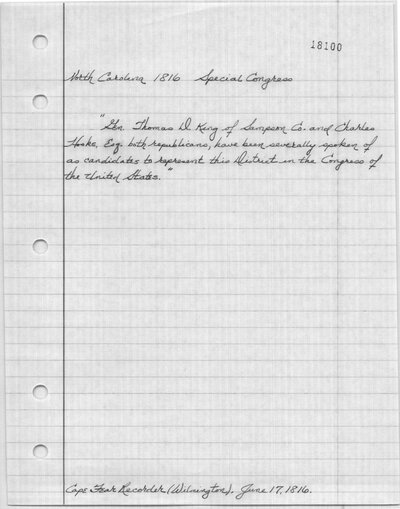 18100
North Carolina 1816 Special Congress
"Gen. Thomas D. King of Sampson Co. and Charles
Hooke, Esq. both republicans, have been severally spoken of
as candidates to represent this District in the Congress of
the United States."
Cape Fear Recorder (Wilmington). June 17, 1816.